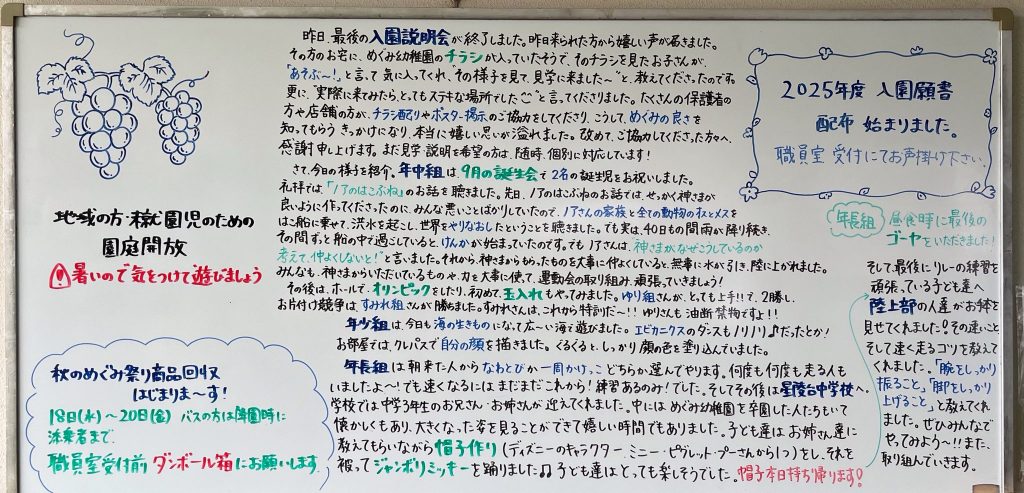 昨日、最後の入園説明会が終了しました。昨日来られた方から嬉しい声が届きました。
その方のお宅に、めぐみ幼稚園のチラシが入っていたそうで、そのチラシを見たお子さんが、
「あそぶ〜!」と言って気に入ってくれ"その様子を見て、見学に来ました〜"と、教えてくださったのです。
更に、"実際に来てみたら、とってもステキな場所でした"と言ってくださりました。たくさんの保護者の
方や店舗の方が、チラシ配りやポスター掲示のご協力をしてくださり、こうして、めぐみの良さを
知ってもらうきっかけになり、本当に嬉しい思いが溢れました。改めて、ご協力してくださった方々へ、
感謝申し上げます。まだ見学・説明を希望の方は、随時、個別に対応しています!
さて、今日の様子を紹介。年中組は、9月の誕生会で2名の誕生児をお祝いしました。
礼拝では「ノアのはこぶね」のお話を聴きました。先日、ノアのはこぶねのお話では、せっかく神さまが
良いように作ってくださったのに、みんな悪いことばかりしていたので、ノアさんの家族と全ての動物のオスとメスを
はこ船に乗せて、洪水を起こし、世界をやりなおしたということを聴きました。でも実は、40日もの間雨が降り続き、
その間ずっと船の中で過ごしていると、けんかが始まっていたのです。でもノアさんは、神さまがなぜこうしているのか
考えて、仲よくしないと!"と言いました。それから、神さまからもらったものを大事に仲よくしていると、無事に水が引き、陸に上がれました。
みんなも、神さまからいただいているものや、力を大事に使って、運動会の取り組み、頑張っていきましょう!
その後は、ホールで、オリンピックをしたり、初めて、玉入れもやってみました。ゆり組さんが、とっても上手!!で、2勝し、
お片付け競争は、すみれ組さんが勝ちました。すみれさんは、これから特訓だ〜!!ゆりさんも油断禁物ですよ!!
年少組は、今日も海の生きものになって広〜い海で遊びました。エビカニクスのダンスもノリノリ♪だったとか!
お部屋では、クレパスで自分の顔を描きました。くるくると、しっかり顔の色を塗り込んでいました。
年長組は朝来た人からなわとびか一周かけっこどちらか選んでやります。何度も何度も走る人も
いましたよ〜!でも速くなるにはまだまだこれから!練習あるのみ!でした。そしてその後は星陵台中学校へ。
学校では中学3年生のお兄さん・お姉さんが迎えてくれました。中にはめぐみ幼稚園を卒園した人たちもいて
懐かしくもあり、大きくなった姿を見ることができて嬉しい時間でもありました。子ども達はお姉さん達に
教えてもらいながら帽子作り(ディズニーのキャラクター、ミニー・ピグレット・プーさんから1つ)をし、それを
被ってジャンボリミッキーを踊りました♫子ども達はとっても楽しそうでした。帽子本日持ち帰ります!
地域の方・未就園児のための
園庭開放
暑いので気をつけて遊びましょう
秋のめぐみ祭り商品回収
はじまりま〜す!
18日(水)〜20日(金) バスの方は降園時に
添乗者まで、
職員室受付前ダンボール箱にお願いします
2025年度 入園願書
配布 始まりました。
職員室 受付にてお声掛け下さい。
年長組 昼食時に最後の
ゴーヤをいただきました!
そして、最後にリレーの練習を
頑張っている子ども達へ
陸上部の人達がお手本を
見せてくれました!その速いこと
そして速く走るコツを教えて
くれました。「腕をしっかり
振ること」「脚をしっかり
上げること」と教えてくれ
ました。ぜひみんなで
やってみよう〜!!また、
取り組んでいきます。